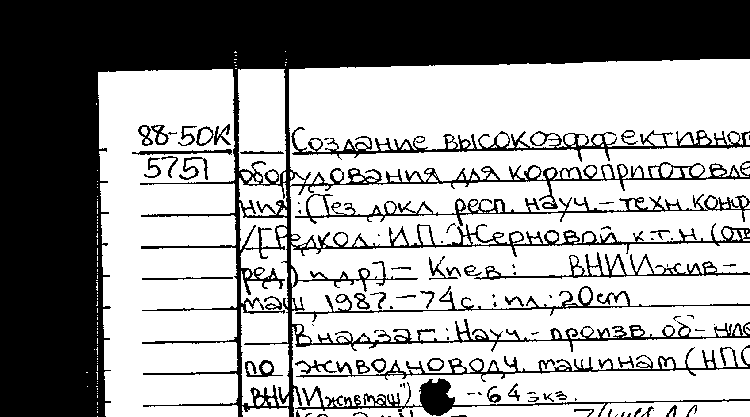 88-50К Создание высокоэффективног
5751 оборудования для кормоприготовле
ния: (Тез докл. респ. науч.-техн. конф
/[Редкол.: И.П. Жерновой, к.т.н. (отв
ред) и др.] — Киев : ВНИИжив-
маш, 1987. — 74 с. : ил.; 20 см.
В надзаг.: Науч.- произв. об-ние
по живодноводч. машинам (НПО
„ВНИИживмаш") -: 64 экз.